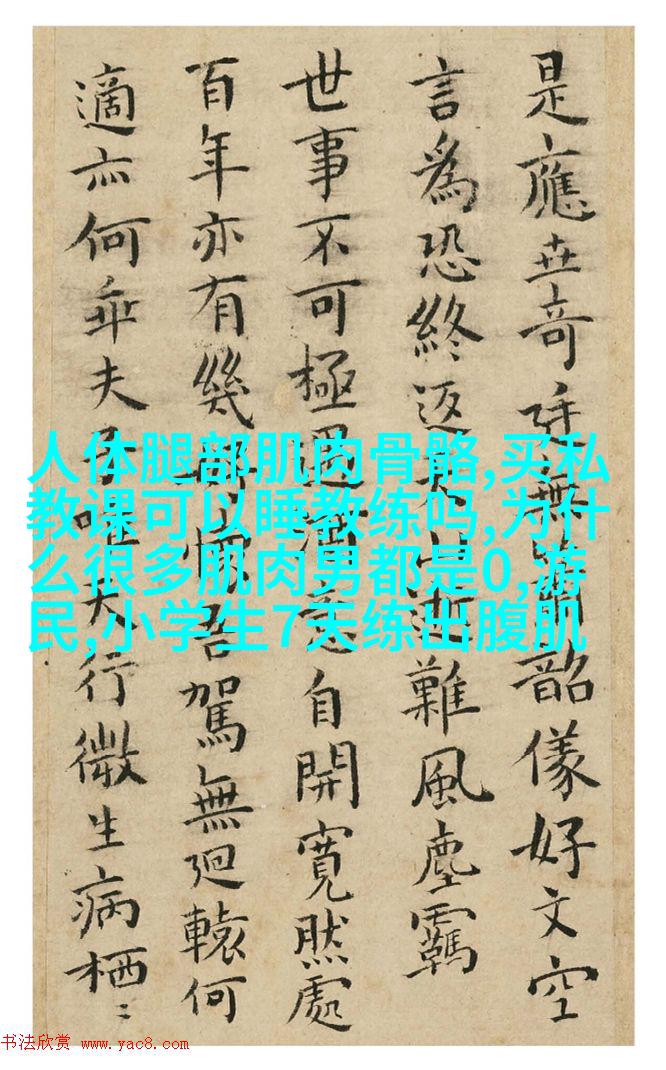 是應世奇無韶儀好文空
言為恐終返難風塵羈
世事不可極遇酒自開寬然處
百年亦有幾吾駕無迴轅何
適亦何乖夫行微生病栖〻
人体腿部肌肉骨骼,买私
教课可以睡教练吗,为什
么很多肌肉男都是0,游
民,小学生7天练出腹肌
书法欣赏 www.yac8.com